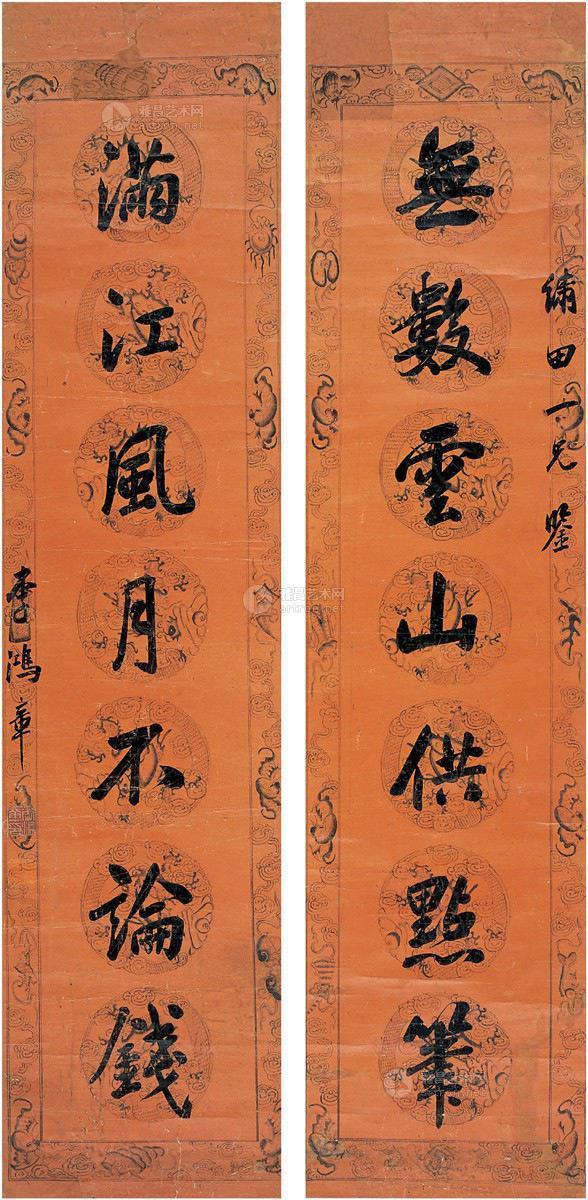 繡田一兄鑒
無數雲山供點筆
滿江風月不論錢
李鴻章
雅昌艺术网
artron.net